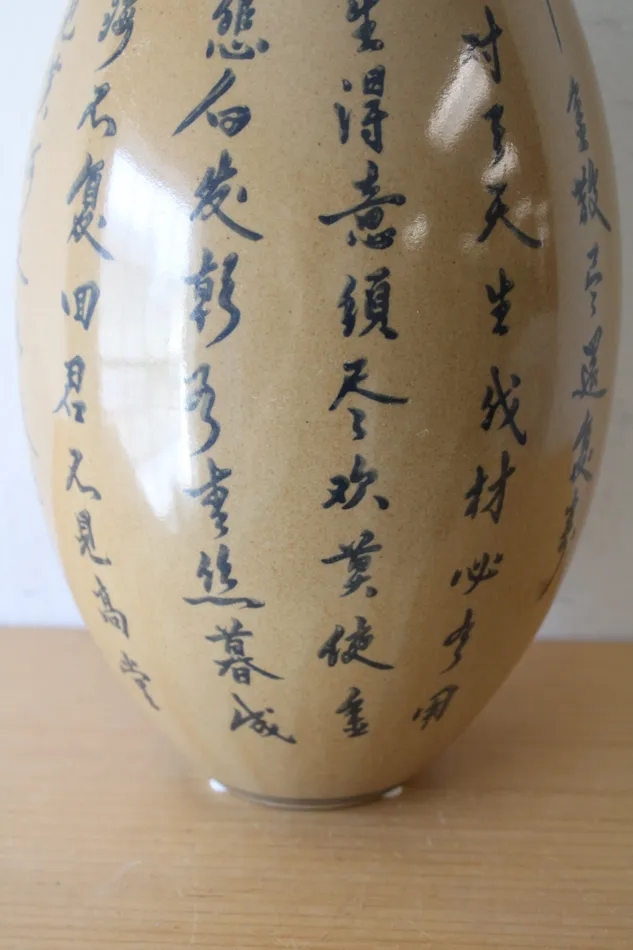 海不复回君不見高堂
悲白发朝如青丝暮成
生得意須尽欢莫使金
对月天生我材必有用
金散尽還复来